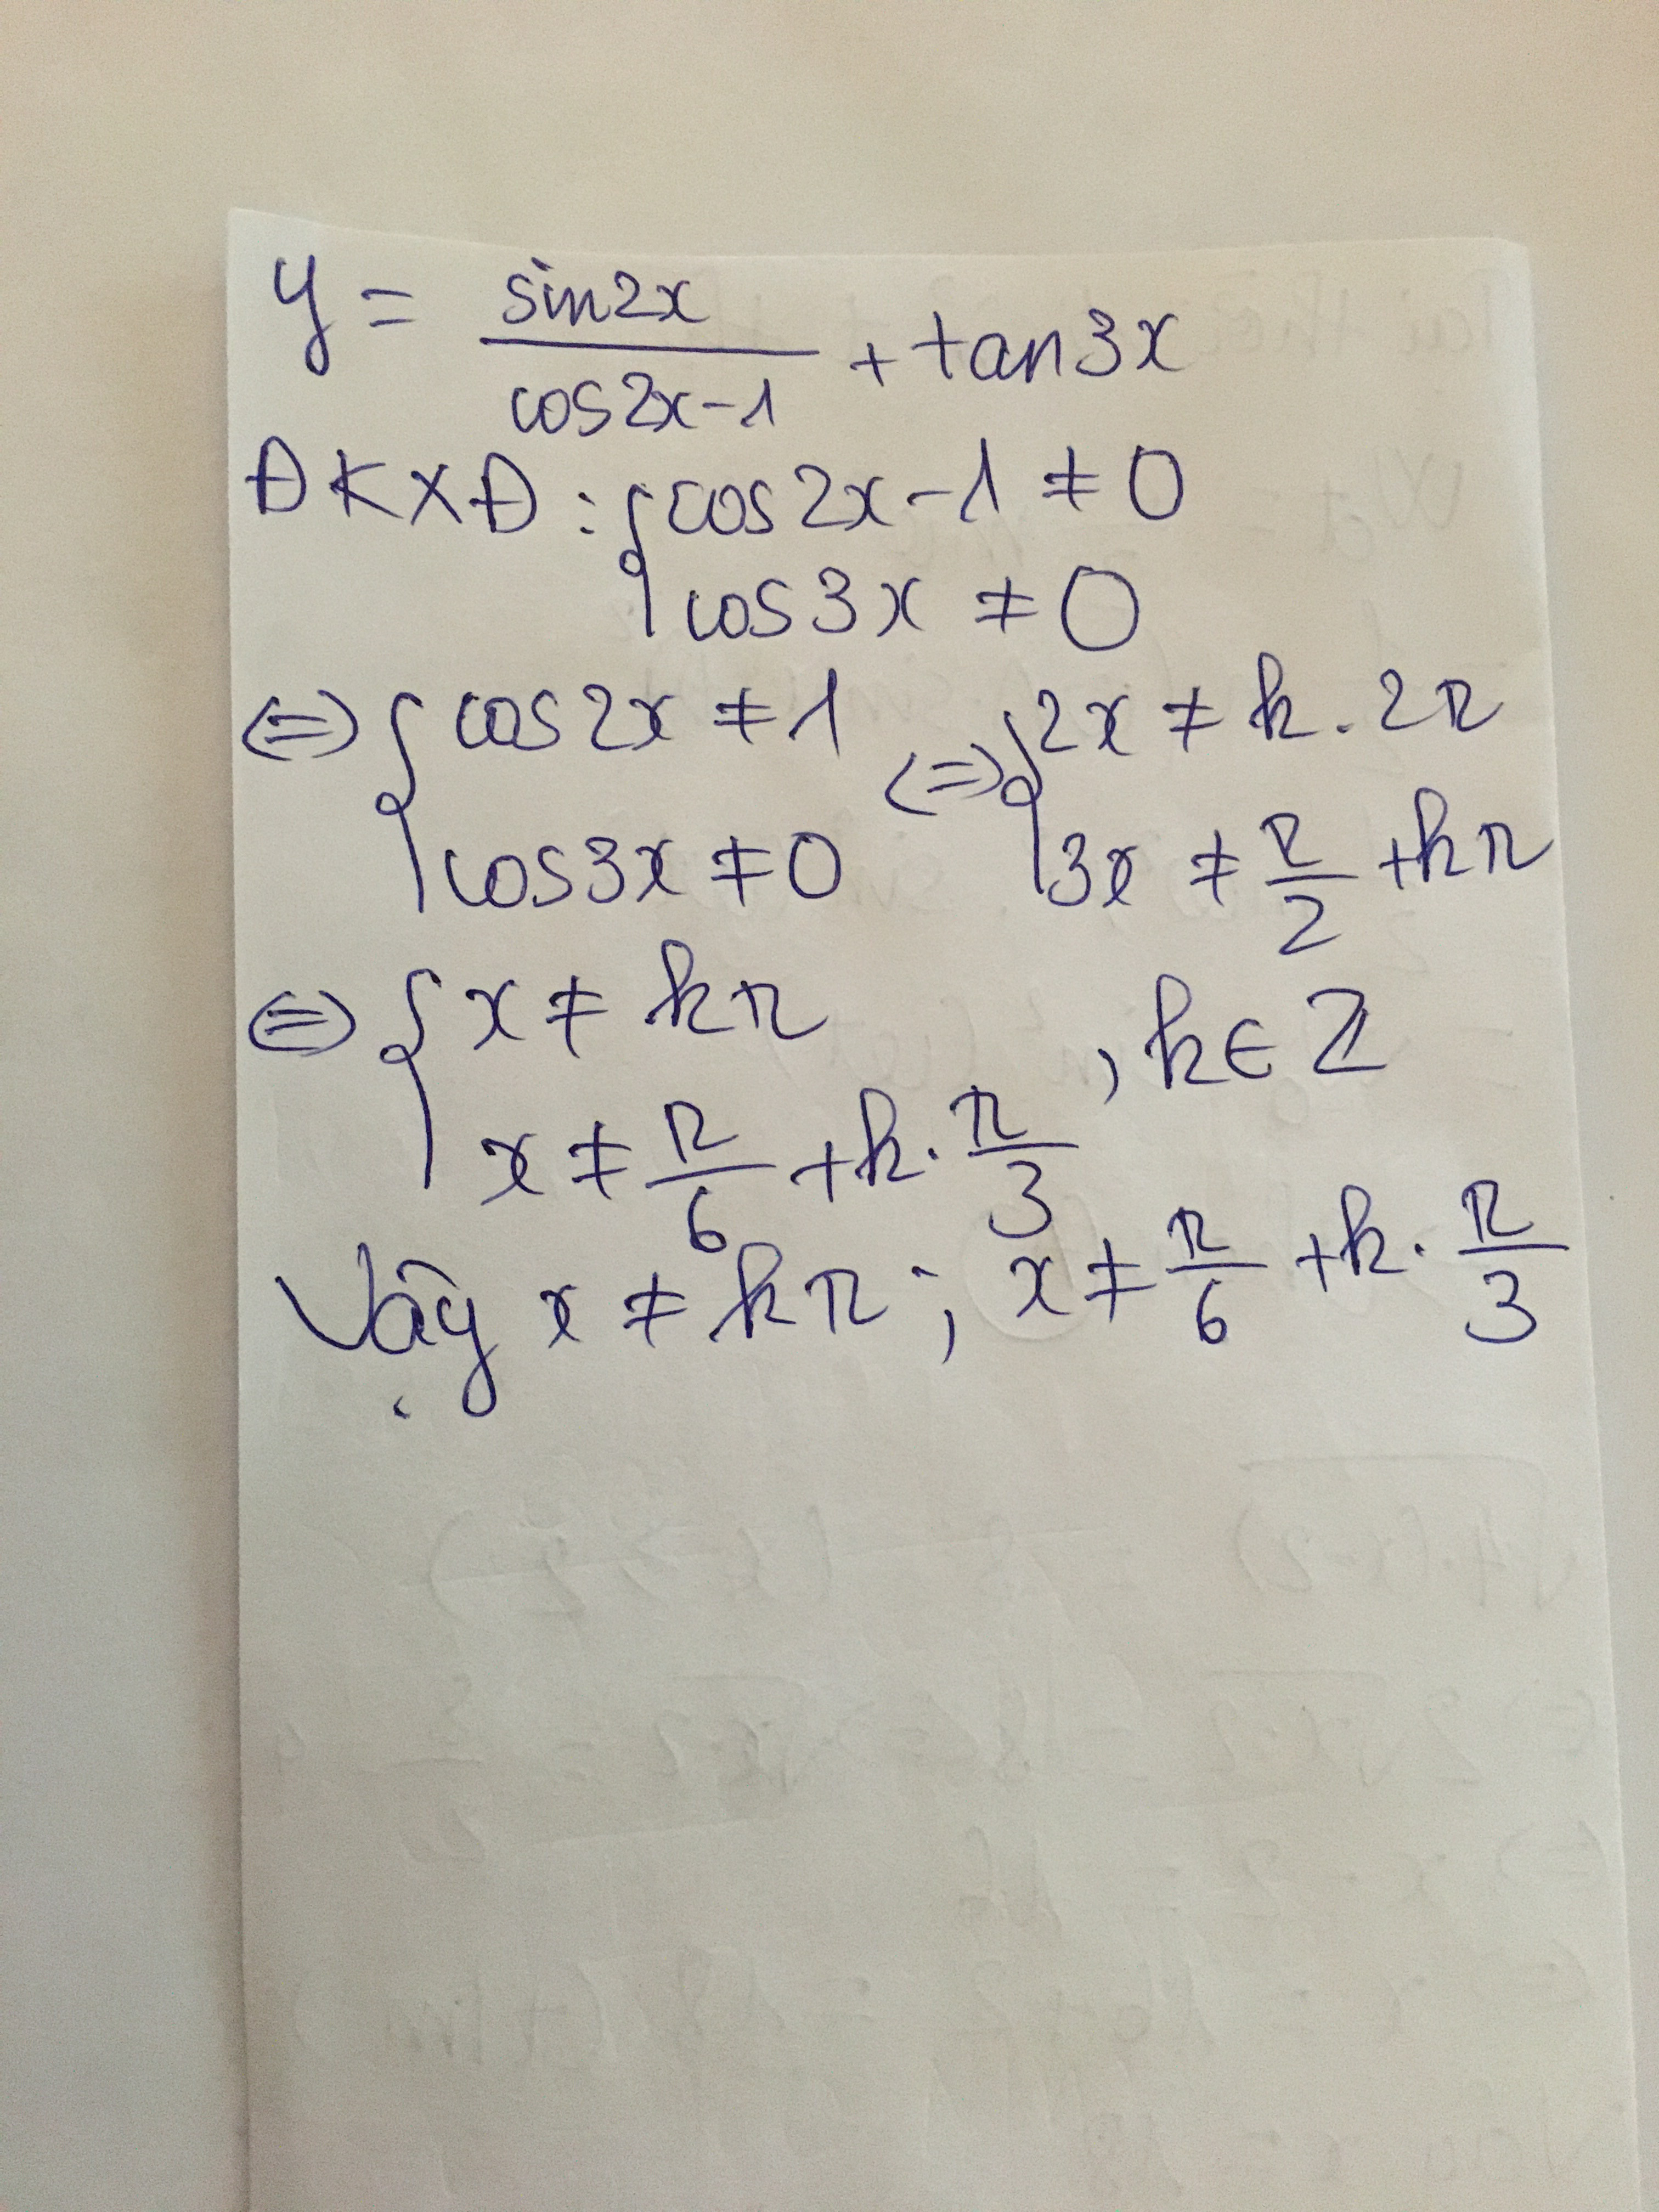 y = sin2x / cos2x-1 + tan3x
ĐKXĐ: { cos2x-1 ≠ 0
cos3x ≠ 0
<=> { cos2x ≠ 1 <=> { 2x ≠ k.2π
cos3x ≠ 0 3x ≠ π/2 + kπ
<=> { x ≠ kπ , k∈Z
x ≠ π/6 + k.π/3
Vậy x ≠ kπ; x ≠ π/6 + k.π/3